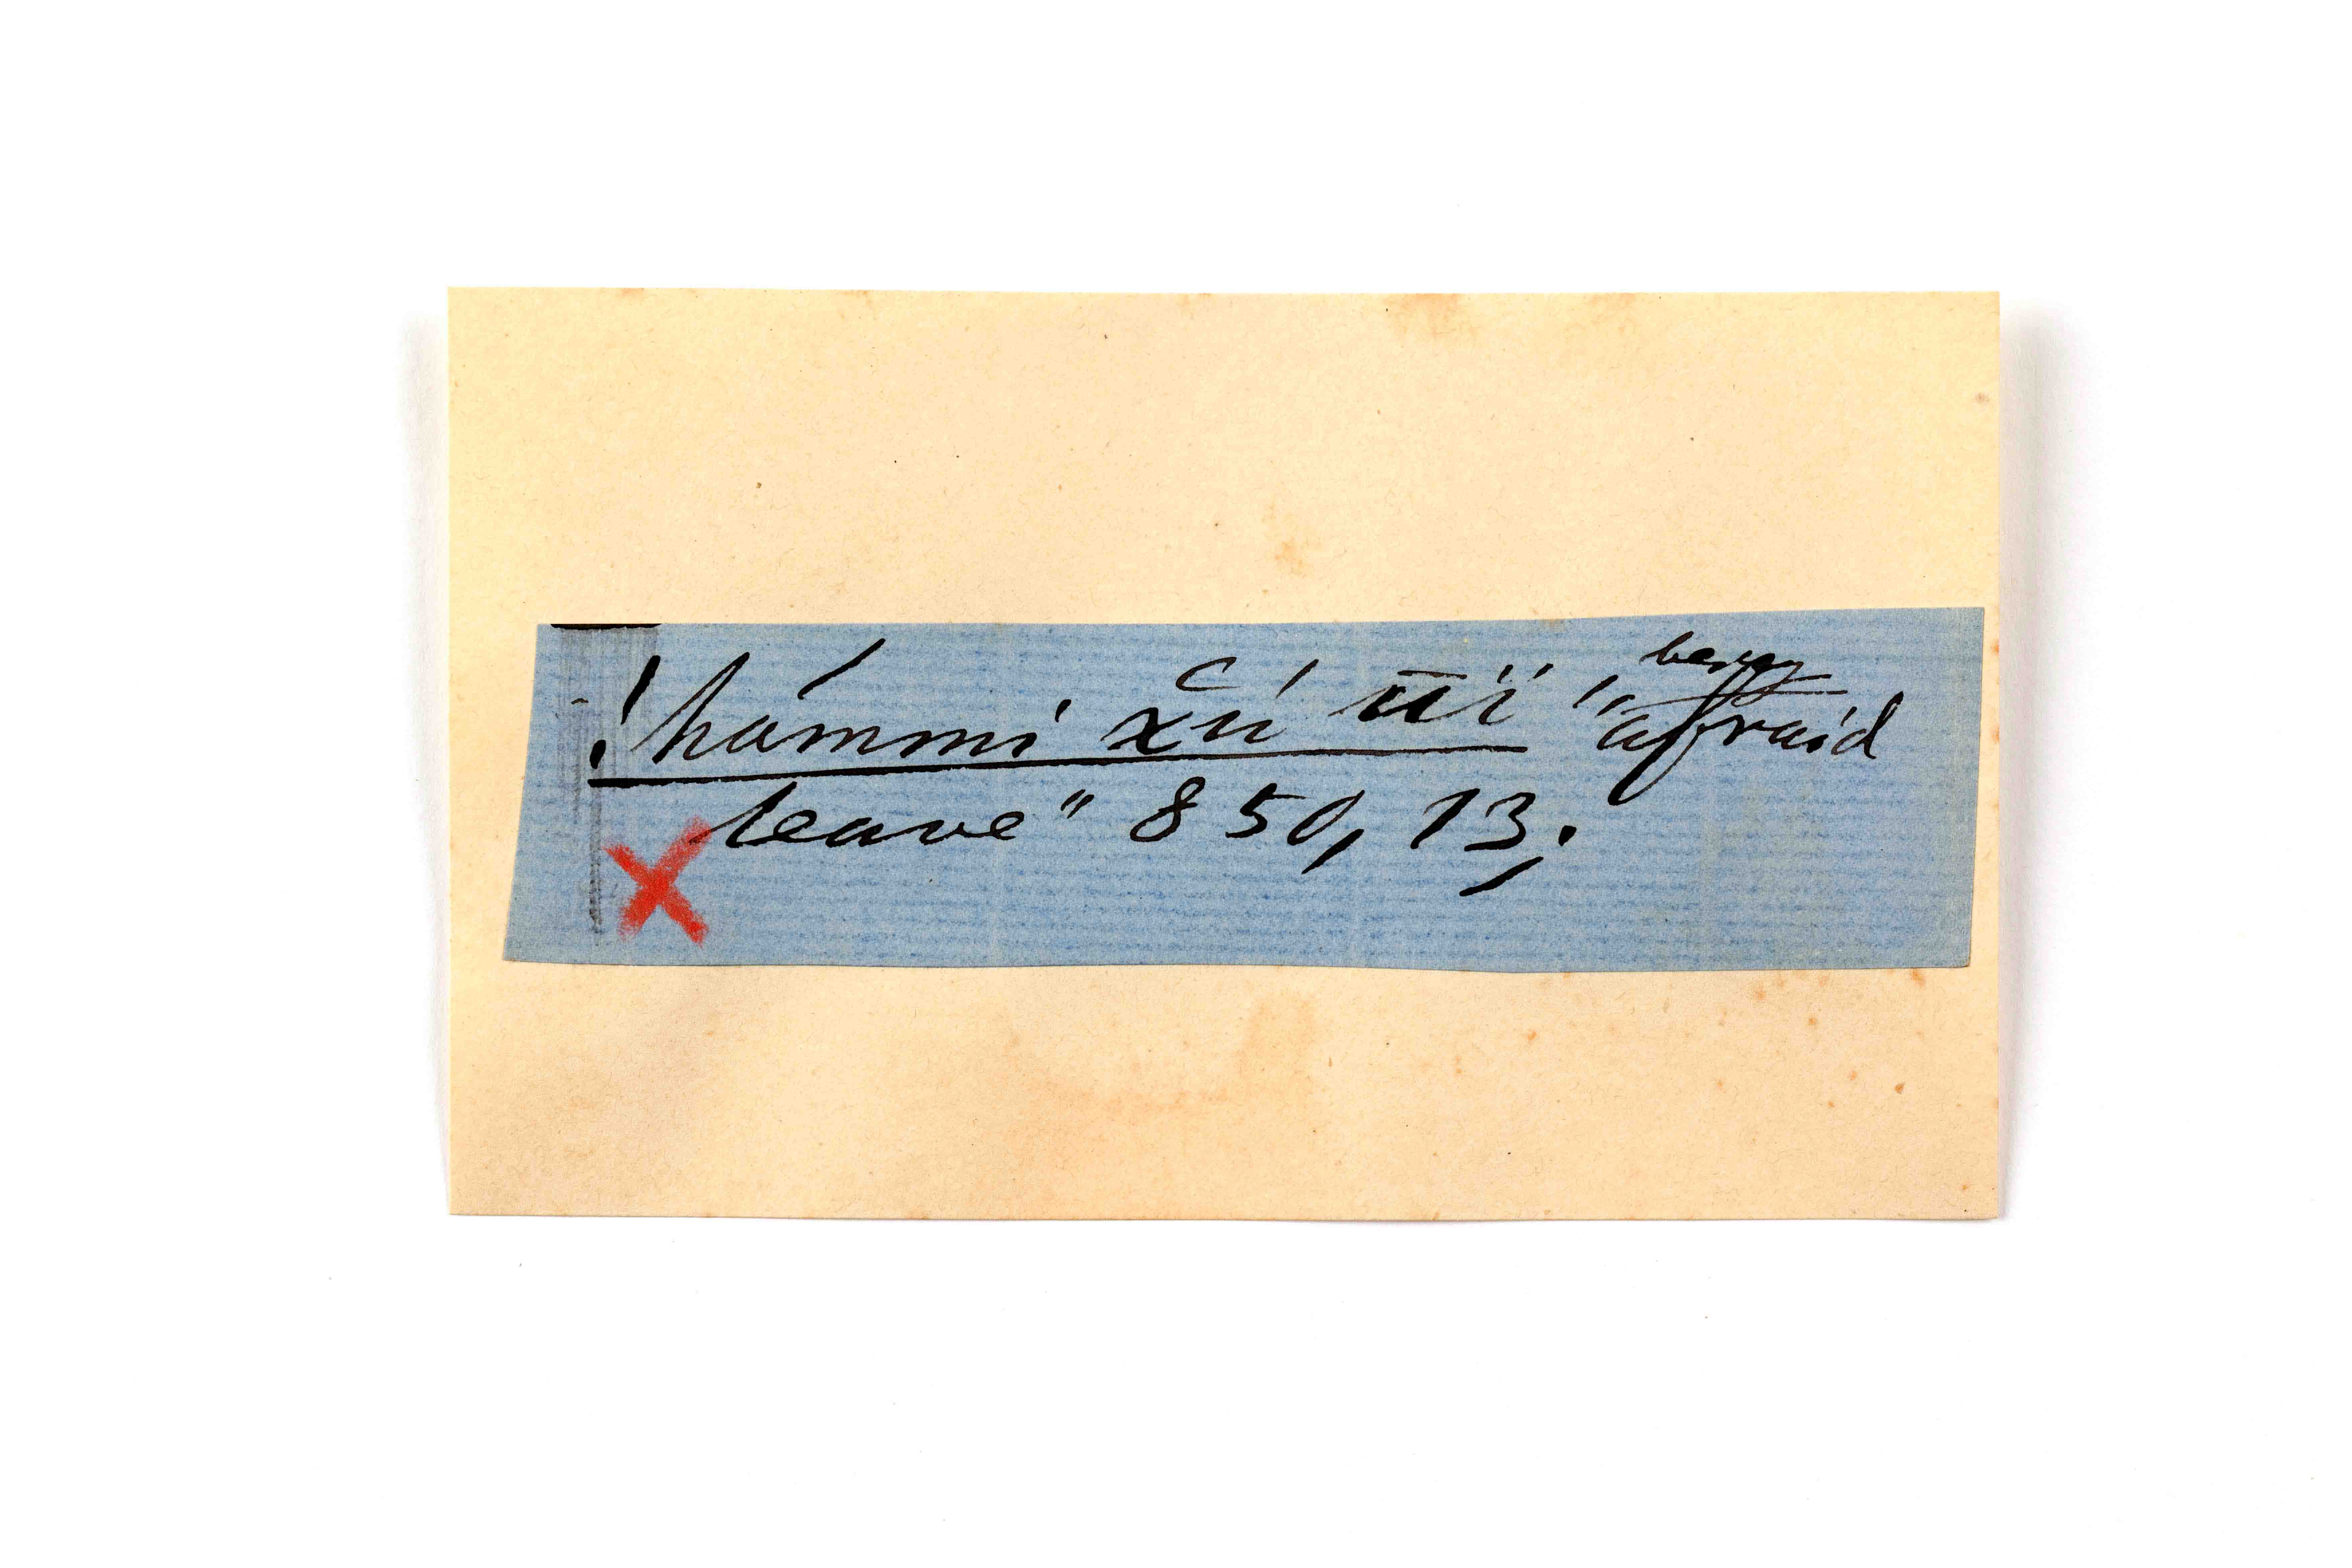 !hámmi x̆ú ūï "being afraid
leave" 850, 13;